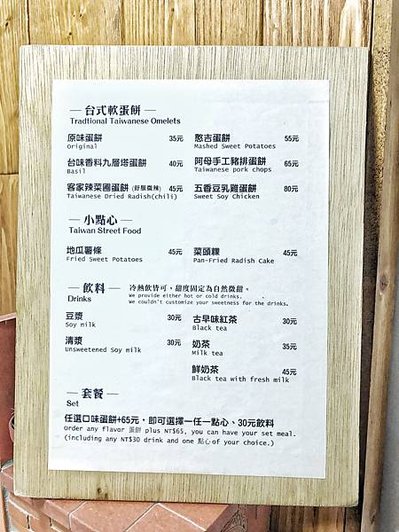 — 台式軟蛋餅 —
Tradtional Taiwanese Omelets
原味蛋餅 35元
Original
憨吉蛋餅 55元
Mashed Sweet Potatoes
台味香料九層塔蛋餅 40元
Basil
阿母手工豬排蛋餅 65元
Taiwanese pork chops
客家辣菜圃蛋餅 (舒服微辣) 45元
Taiwanese Dried Radish(chili)
五香豆乳雞蛋餅 80元
Sweet Soy Chicken
— 小點心 —
Taiwan Street Food
地瓜薯條 45元
Fried Sweet Potatoes
菜頭粿 45元
Pan-Fried Radish Cake
— 飲料 — 冷熱飲皆可，甜度固定為自然微甜。
Drinks
We provide either hot or cold drinks.
We couldn't customize your sweetness for the drinks.
豆漿 30元
Soy milk
古早味紅茶 30元
Black tea
清漿 30元
Unsweetened Soy milk
奶茶 35元
Milk tea
鮮奶茶 45元
Black tea with fresh milk
— 套餐 —
Set
任選口味蛋餅+65元，即可選擇一任一點心、30元飲料
order any flavor 蛋餅 plus NT$65, you can have your set meal.
(including any NT$30 drink and one 點心 of your choice.)